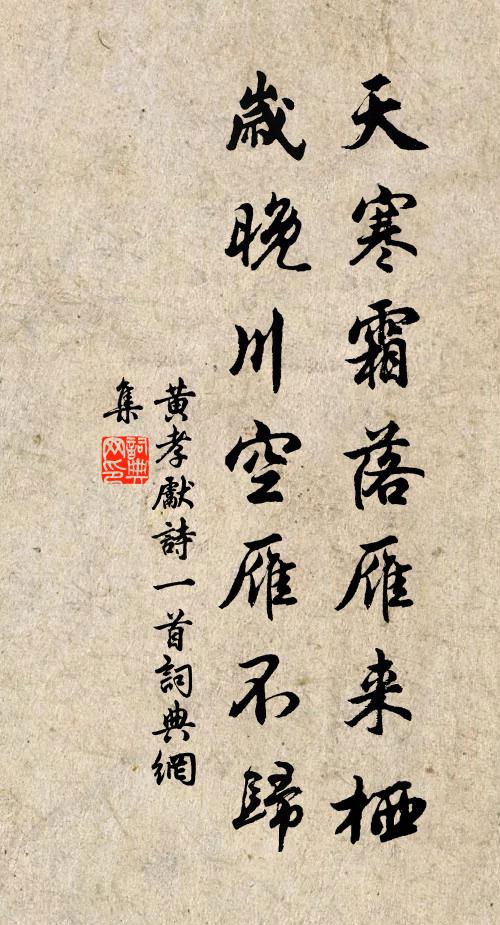 天寒霜落雁来栖
歲晚川空雁不歸
黄孝獻詩一首詞典網
集
詞典
网印